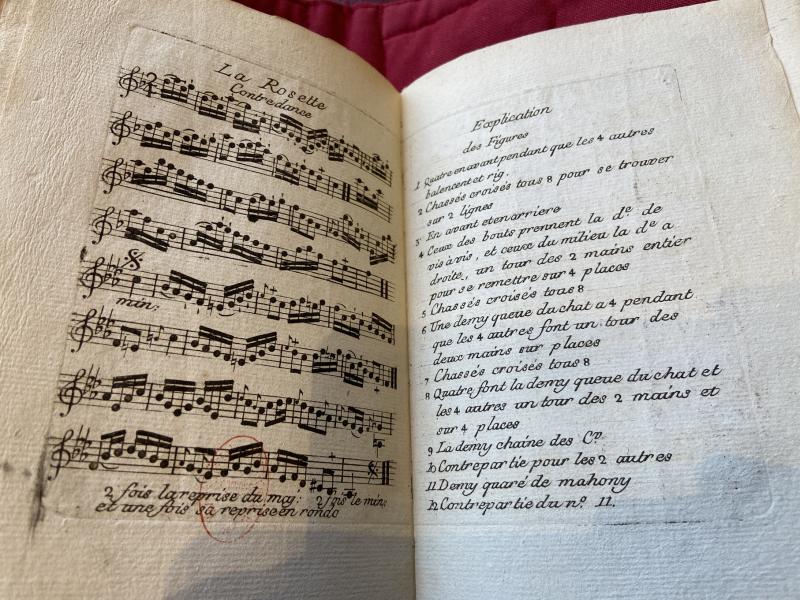 La Rosette
Contredance
min:
2 fois la reprise du maj: 2 fois le min:
et une fois sa reprise en rondo
Explication
des Figures
1 Quatre en avant pendant que les 4 autres
balencent et rig.
2 Chassés croisés tous 8 pour se trouver
sur 2 lignes
3 En avant et en arriere
4 Ceux des bouts prennent la de. de
vis à vis, et ceux du milieu la de. a
droite, un tour des 2 mains entier
pour se remettre sur 4 places
5 Chassés croisés tous 8
6 Une demy queue du chat a 4 pendant
que les 4 autres font un tour des
deux mains sur places
7 Chassés croisés tous 8
8 Quatre font la demy queue du chat et
les 4 autres un tour des 2 mains et
sur 4 places
9 La demy chaîne des Cp.
10 Contrepartie pour les 2 autres
11 Demy quaré de mahony
12 Contrepartie du no. 11.